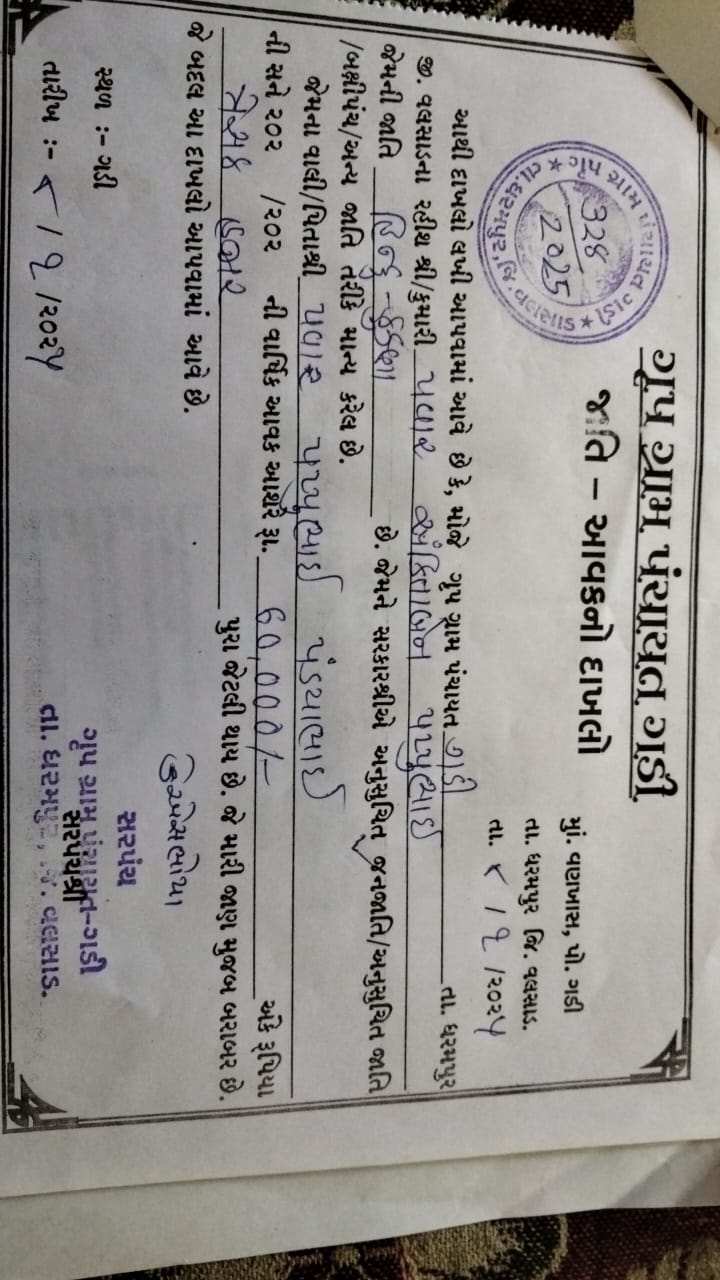 ગૃપ ગ્રામ પંચાયત ગડી
જાતિ – આવકનો દાખલો
ગૃપ ગ્રામ પંચાયત ગડી ★ તા.ધરમપુર, જી.વલસાડ ★
328
2025
મું. વણખાસ, પો. ગડી
તા. ધરમપુર જિ. વલસાડ.
તા. ૮ / ૧ / ૨૦૨૫
આથી દાખલો લખી આપવામાં આવે છે કે, મોજે ગૃપ ગ્રામ પંચાયત ગડી તા. ધરમપુર
જી. વલસાડના રહીશ શ્રી/કુમારી પવાર અંકિતાબેન
જેમની જાતિ હિન્દુ - કુંકણા છે. જેમને સરકારશ્રીએ અનુસુચિત જનજાતિ/અનુસુચિત જાતિ
/બક્ષીપંચ/અન્ય જાતિ તરીકે માન્ય કરેલ છે.
જેમના વાલી/પિતાશ્રી પવાર
ની સને ૨૦૨ /૨૦૨ ની વાર્ષિક આવક આશરે રૂા. 60,000/- અંકે રૂપિયા
હજાર પુરા જેટલી થાય છે. જે મારી જાણ મુજબ બરાબર છે.
જે બદલ આ દાખલો આપવામાં આવે છે.
સ્થળ :- ગડી
તારીખ :- ૮ / ૧ / ૨૦૨૫
સરપંચ
ગૃપ ગ્રામ પંચાયત-ગડી
સરપંચશ્રી
તા. ધરમપુર, જી. વલસાડ.